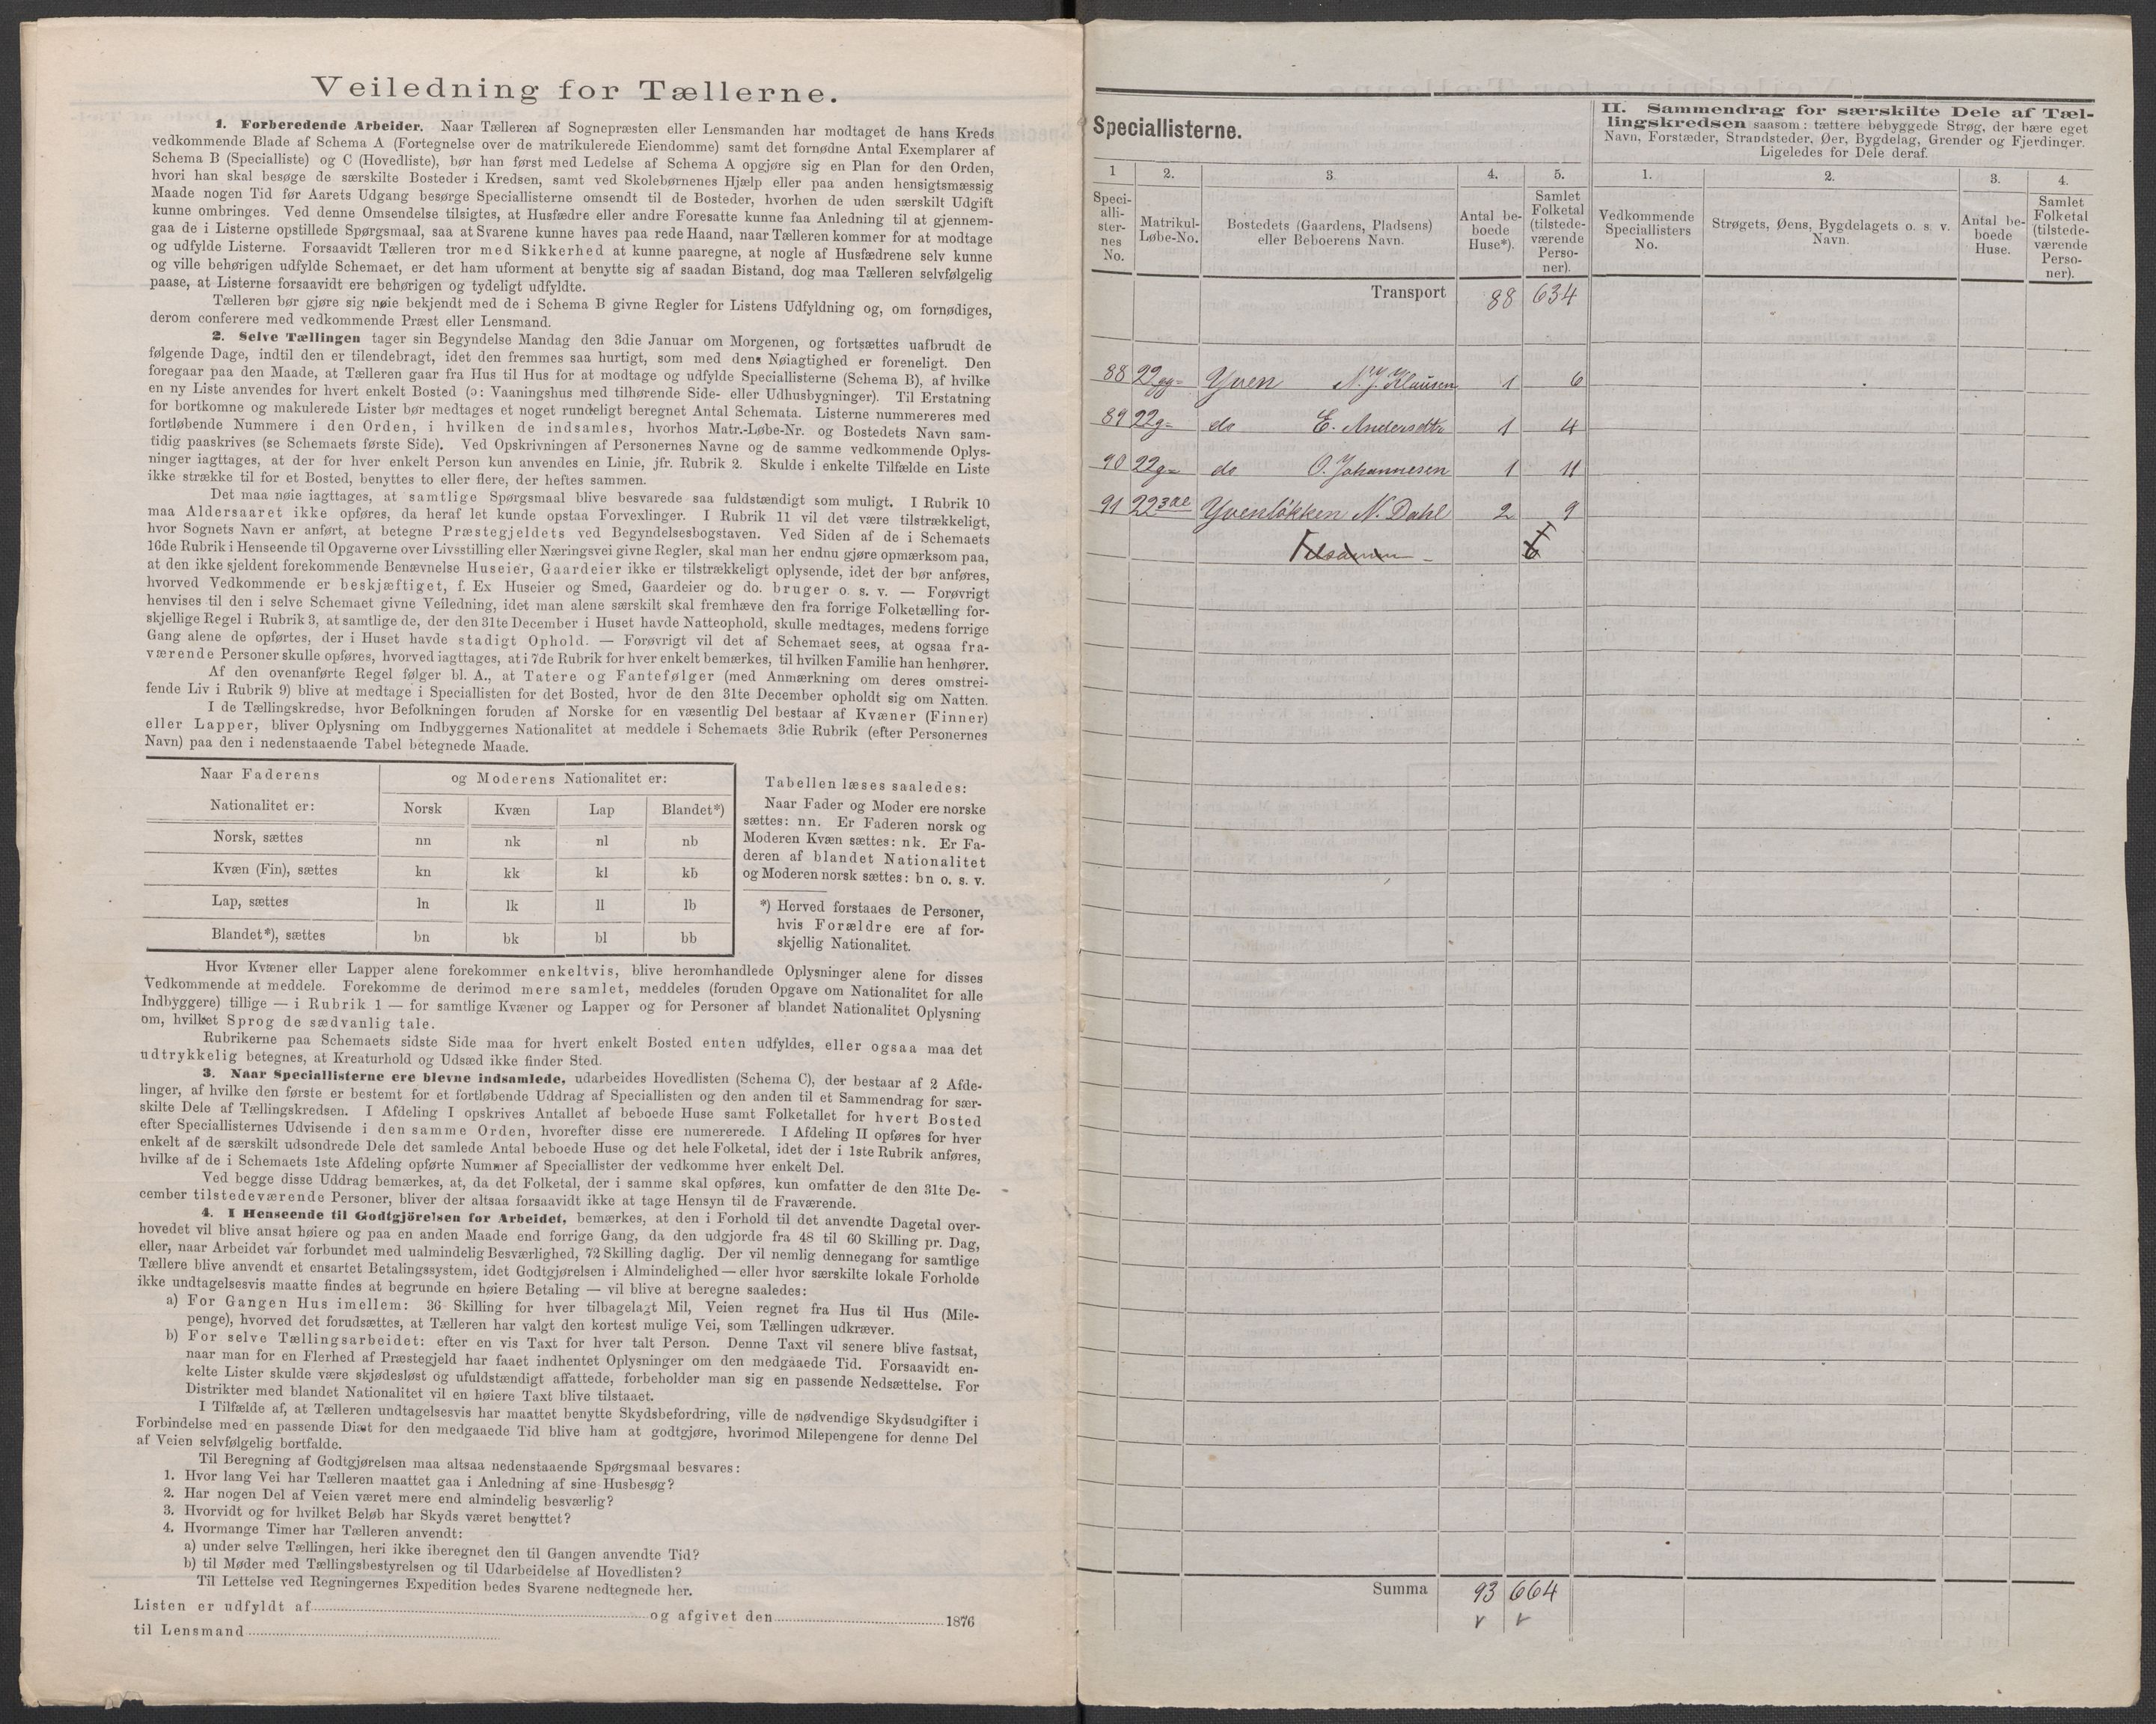 Veiledning for Tællerne.
1. Forberedende Arbeider. Naar Tælleren af Sognepræsten eller Lensmanden har modtaget de hans Kreds
vedkommende Blade af Schema A (Fortegnelse over de matrikulerede Eiendomme) samt det fornødne Antal Exemplarer af
Schema B (Specialliste) og C (Hovedliste), bør han først med Ledelse af Schema A opgjøre sig en Plan for den Orden,
hvori han skal besøge de særskilte Bosteder i Kredsen, samt ved Skolebørnenes Hjælp eller paa anden hensigtsmæssig
Maade nogen Tid før Aarets Udgang besørge Speciallisterne omsendt til de Bosteder, hvorhen de uden særskilt Udgift
kunne ombringes. Ved denne Omsendelse tilsigtes, at Husfædre eller andre Foresatte kunne faa Anledning til at gjennem-
gaa de i Listerne opstillede Spørgsmaal, saa at Svarene kunne haves paa rede Haand, naar Tælleren kommer for at modtage
og udfylde Listerne. Forsaavidt Tælleren tror med Sikkerhed at kunne paaregne, at nogle af Husfædrene selv kunne
og ville behørigen udfylde Schemaet, er det ham uforment at benytte sig af saadan Bistand, dog maa Tælleren selvfølgelig
paase, at Listerne forsaavidt ere behørigen og tydeligt udfyldte.
Tælleren bør gjøre sig nøie bekjendt med de i Schema B givne Regler for Listens Udfyldning og, om fornødiges,
derom conferere med vedkommende Præst eller Lensmand.
2. Selve Tællingen tager sin Begyndelse Mandag den 3die Januar om Morgenen, og fortsættes uafbrudt de
følgende Dage, indtil den er tilendebragt, idet den fremmes saa hurtigt, som med dens Nøiagtighed er foreneligt. Den
foregaar paa den Maade, at Tælleren gaar fra Hus til Hus for at modtage og udfylde Speciallisterne (Schema B), af hvilke
en ny Liste anvendes for hvert enkelt Bosted (ɔ: Vaaningshus med tilhørende Side- eller Udhusbygninger). Til Erstatning
for bortkomne og makulerede Lister bør medtages et noget rundeligt beregnet Antal Schemata. Listerne nummereres med
fortløbende Nummere i den Orden, i hvilken de indsamles, hvorhos Matr.-Løbe-Nr. og Bostedets Navn sam-
tidig paaskrives (se Schemaets første Side). Ved Opskrivningen af Personernes Navne og de samme vedkommende Oplys-
ninger iagttages, at der for hver enkelt Person kun anvendes en Linie, jfr. Rubrik 2. Skulde i enkelte Tilfælde en Liste
ikke strække til for et Bosted, benyttes to eller flere, der heftes sammen.
Det maa nøie iagttages, at samtlige Spørgsmaal blive besvarede saa fuldstændigt som muligt. I Rubrik 10
maa Aldersaaret ikke opføres, da heraf let kunde opstaa Forvexlinger. I Rubrik 11 vil det være tilstrækkeligt,
hvor Sognets Navn er anført, at betegne Præstegjeldets ved Begyndelsesbogstaven. Ved Siden af de i Schemaets
16de Rubrik i Henseende til Opgaverne over Livsstilling eller Næringsvei givne Regler, skal man her endnu gjøre opmærksom paa,
at den ikke sjeldent forekommende Benævnelse Huseier, Gaardeier ikke er tilstrækkeligt oplysende, idet der bør anføres,
hvorved Vedkommende er beskjæftiget, f. Ex Huseier og Smed, Gaardeier og do. bruger o. s. v. — Forøvrigt
henvises til den i selve Schemaet givne Veiledning, idet man alene særskilt skal fremhæve den fra forrige Folketælling for-
skjellige Regel i Rubrik 3, at samtlige de, der den 31te December i Huset havde Natteophold, skulle medtages, medens forrige
Gang alene de opførtes, der i Huset havde stadigt Ophold. — Forøvrigt vil det af Schemaet sees, at ogsaa fra-
værende Personer skulle opføres, hvorved iagttages, at i 7de Rubrik for hver enkelt bemærkes, til hvilken Familie han henhører.
Af den ovenanførte Regel følger bl. A., at Tatere og Fantefølger (med Anmærkning om deres omstrei-
fende Liv i Rubrik 9) blive at medtage i Speciallisten for det Bosted, hvor de den 31te December opholdt sig om Natten.
I de Tællingskredse, hvor Befolkningen foruden af Norske for en væsentlig Del bestaar af Kvæner (Finner)
eller Lapper, bliver Oplysning om Indbyggernes Nationalitet at meddele i Schemaets 3die Rubrik (efter Personernes
Navn) paa den i nedenstaaende Tabel betegnede Maade.
Naar Faderens og Moderens Nationalitet er:
Nationalitet er: Norsk Kvæn Lap Blandet*)
Norsk, sættes nn nk nl nb
Kvæn (Fin), sættes kn kk kl kb
Lap, sættes ln lk ll lb
Blandet*), sættes bn bk bl bb
Tabellen læses saaledes:
Naar Fader og Moder ere norske
sættes: nn. Er Faderen norsk og
Moderen Kvæn sættes: nk. Er Fa-
deren af blandet Nationalitet
og Moderen norsk sættes: bn o. s. v.
*) Herved forstaaes de Personer,
hvis Forældre ere af for-
skjellig Nationalitet.
Hvor Kvæner eller Lapper alene forekommer enkeltvis, blive heromhandlede Oplysninger alene for disses
Vedkommende at meddele. Forekomme de derimod mere samlet, meddeles (foruden Opgave om Nationalitet for alle
Indbyggere) tillige — i Rubrik 1 — for samtlige Kvæner og Lapper og for Personer af blandet Nationalitet Oplysning
om, hvilket Sprog de sædvanlig tale.
Rubrikerne paa Schemaets sidste Side maa for hvert enkelt Bosted enten udfyldes, eller ogsaa maa det
udtrykkelig betegnes, at Kreaturhold og Udsæd ikke finder Sted.
3. Naar Speciallisterne ere blevne indsamlede, udarbeides Hovedlisten (Schema C), der bestaar af 2 Afde-
linger, af hvilke den første er bestemt for et fortløbende Uddrag af Speciallisten og den anden til et Sammendrag for sær-
skilte Dele af Tællingskredsen. I Afdeling I opskrives Antallet af beboede Huse samt Folketallet for hvert Bosted
efter Speciallisternes Udvisende i den samme Orden, hvorefter disse ere numererede. I Afdeling II opføres for hver
enkelt af de særskilt udsondrede Dele det samlede Antal beboede Huse og det hele Folketal, idet der i 1ste Rubrik anføres,
hvilke af de i Schemaets 1ste Afdeling opførte Nummer af Speciallister der vedkomme hver enkelt Del.
Ved begge disse Uddrag bemærkes, at, da det Folketal, der i samme skal opføres, kun omfatter de den 31te De-
cember tilstedeværende Personer, bliver der altsaa forsaavidt ikke at tage Hensyn til de Fraværende.
4. I Henseende til Godtgjörelsen for Arbeidet, bemærkes, at den i Forhold til det anvendte Dagetal over-
hovedet vil blive ansat høiere og paa en anden Maade end forrige Gang, da den udgjorde fra 48 til 60 Skilling pr. Dag,
eller, naar Arbeidet var forbundet med ualmindelig Besværlighed, 72 Skilling daglig. Der vil nemlig dennegang for samtlige
Tællere blive anvendt et ensartet Betalingssystem, idet Godtgjørelsen i Almindelighed — eller hvor særskilte lokale Forholde
ikke undtagelsesvis maatte findes at begrunde en høiere Betaling — vil blive at beregne saaledes:
a) For Gangen Hus imellem: 36 Skilling for hver tilbagelagt Mil, Veien regnet fra Hus til Hus (Mile-
penge), hvorved det forudsættes, at Tælleren har valgt den kortest mulige Vei, som Tællingen udkræver.
b) For selve Tællingsarbeidet: efter en vis Taxt for hver talt Person. Denne Taxt vil senere blive fastsat,
naar man for en Flerhed af Præstegjeld har faaet indhentet Oplysninger om den medgaaede Tid. Forsaavidt en-
kelte Lister skulde være skjødesløst og ufuldstændigt affattede, forbeholder man sig en passende Nedsættelse. For
Distrikter med blandet Nationalitet vil en høiere Taxt blive tilstaaet.
I Tilfælde af, at Tælleren undtagelsesvis har maattet benytte Skydsbefordring, ville de nødvendige Skydsudgifter i
Forbindelse med en passende Diæt for den medgaaede Tid blive ham at godtgjøre, hvorimod Milepengene for denne Del
af Veien selvfølgelig bortfalde.
Til Beregning af Godtgjørelsen maa altsaa nedenstaaende Spørgsmaal besvares:
1. Hvor lang Vei har Tælleren maattet gaa i Anledning af sine Husbesøg?
2. Har nogen Del af Veien været mere end almindelig besværlig?
3. Hvorvidt og for hvilket Beløb har Skyds været benyttet?
4. Hvormange Timer har Tælleren anvendt:
a) under selve Tællingen, heri ikke iberegnet den til Gangen anvendte Tid?
b) til Møder med Tællingsbestyrelsen og til Udarbeidelse af Hovedlisten?
Til Lettelse ved Regningernes Expedition bedes Svarene nedtegnede her.
Listen er udfyldt af og afgivet den 1876
til Lensmand
Speciallisterne.
1 2. 3. 4. 5.
Speci-
alli-
ster-
nes
No.
Matrikul-
Løbe-No.
Bostedets (Gaardens, Pladsens)
eller Beboerens Navn.
Antal be-
boede
Huse*).
Samlet
Folketal
(tilstede-
værende
Perso-
ner).
II. Sammendrag for særskilte Dele af Tæl-
lingskredsen saasom: tættere bebyggede Strøg, der bære eget
Navn, Forstæder, Strandsteder, Øer, Bygdelag, Grender og Fjerdinger.
Ligeledes for Dele deraf.
1. 2. 3. 4.
Vedkommende
Speciallisters
No.
Strøgets, Øens, Bygdelagets o. s. v.
Navn.
Antal be-
boede
Huse.
Samlet
Folketal
(tilstede-
værende
Perso-
ner).
Transport 88 634
88 Yven N. J. Klausen 1 6
89 22g= do E. Andersdtr 1 4
90 22g= do O. Johannesen 1 11
91 Yvenløkken N. Dahl 2 9
Summa 93 664